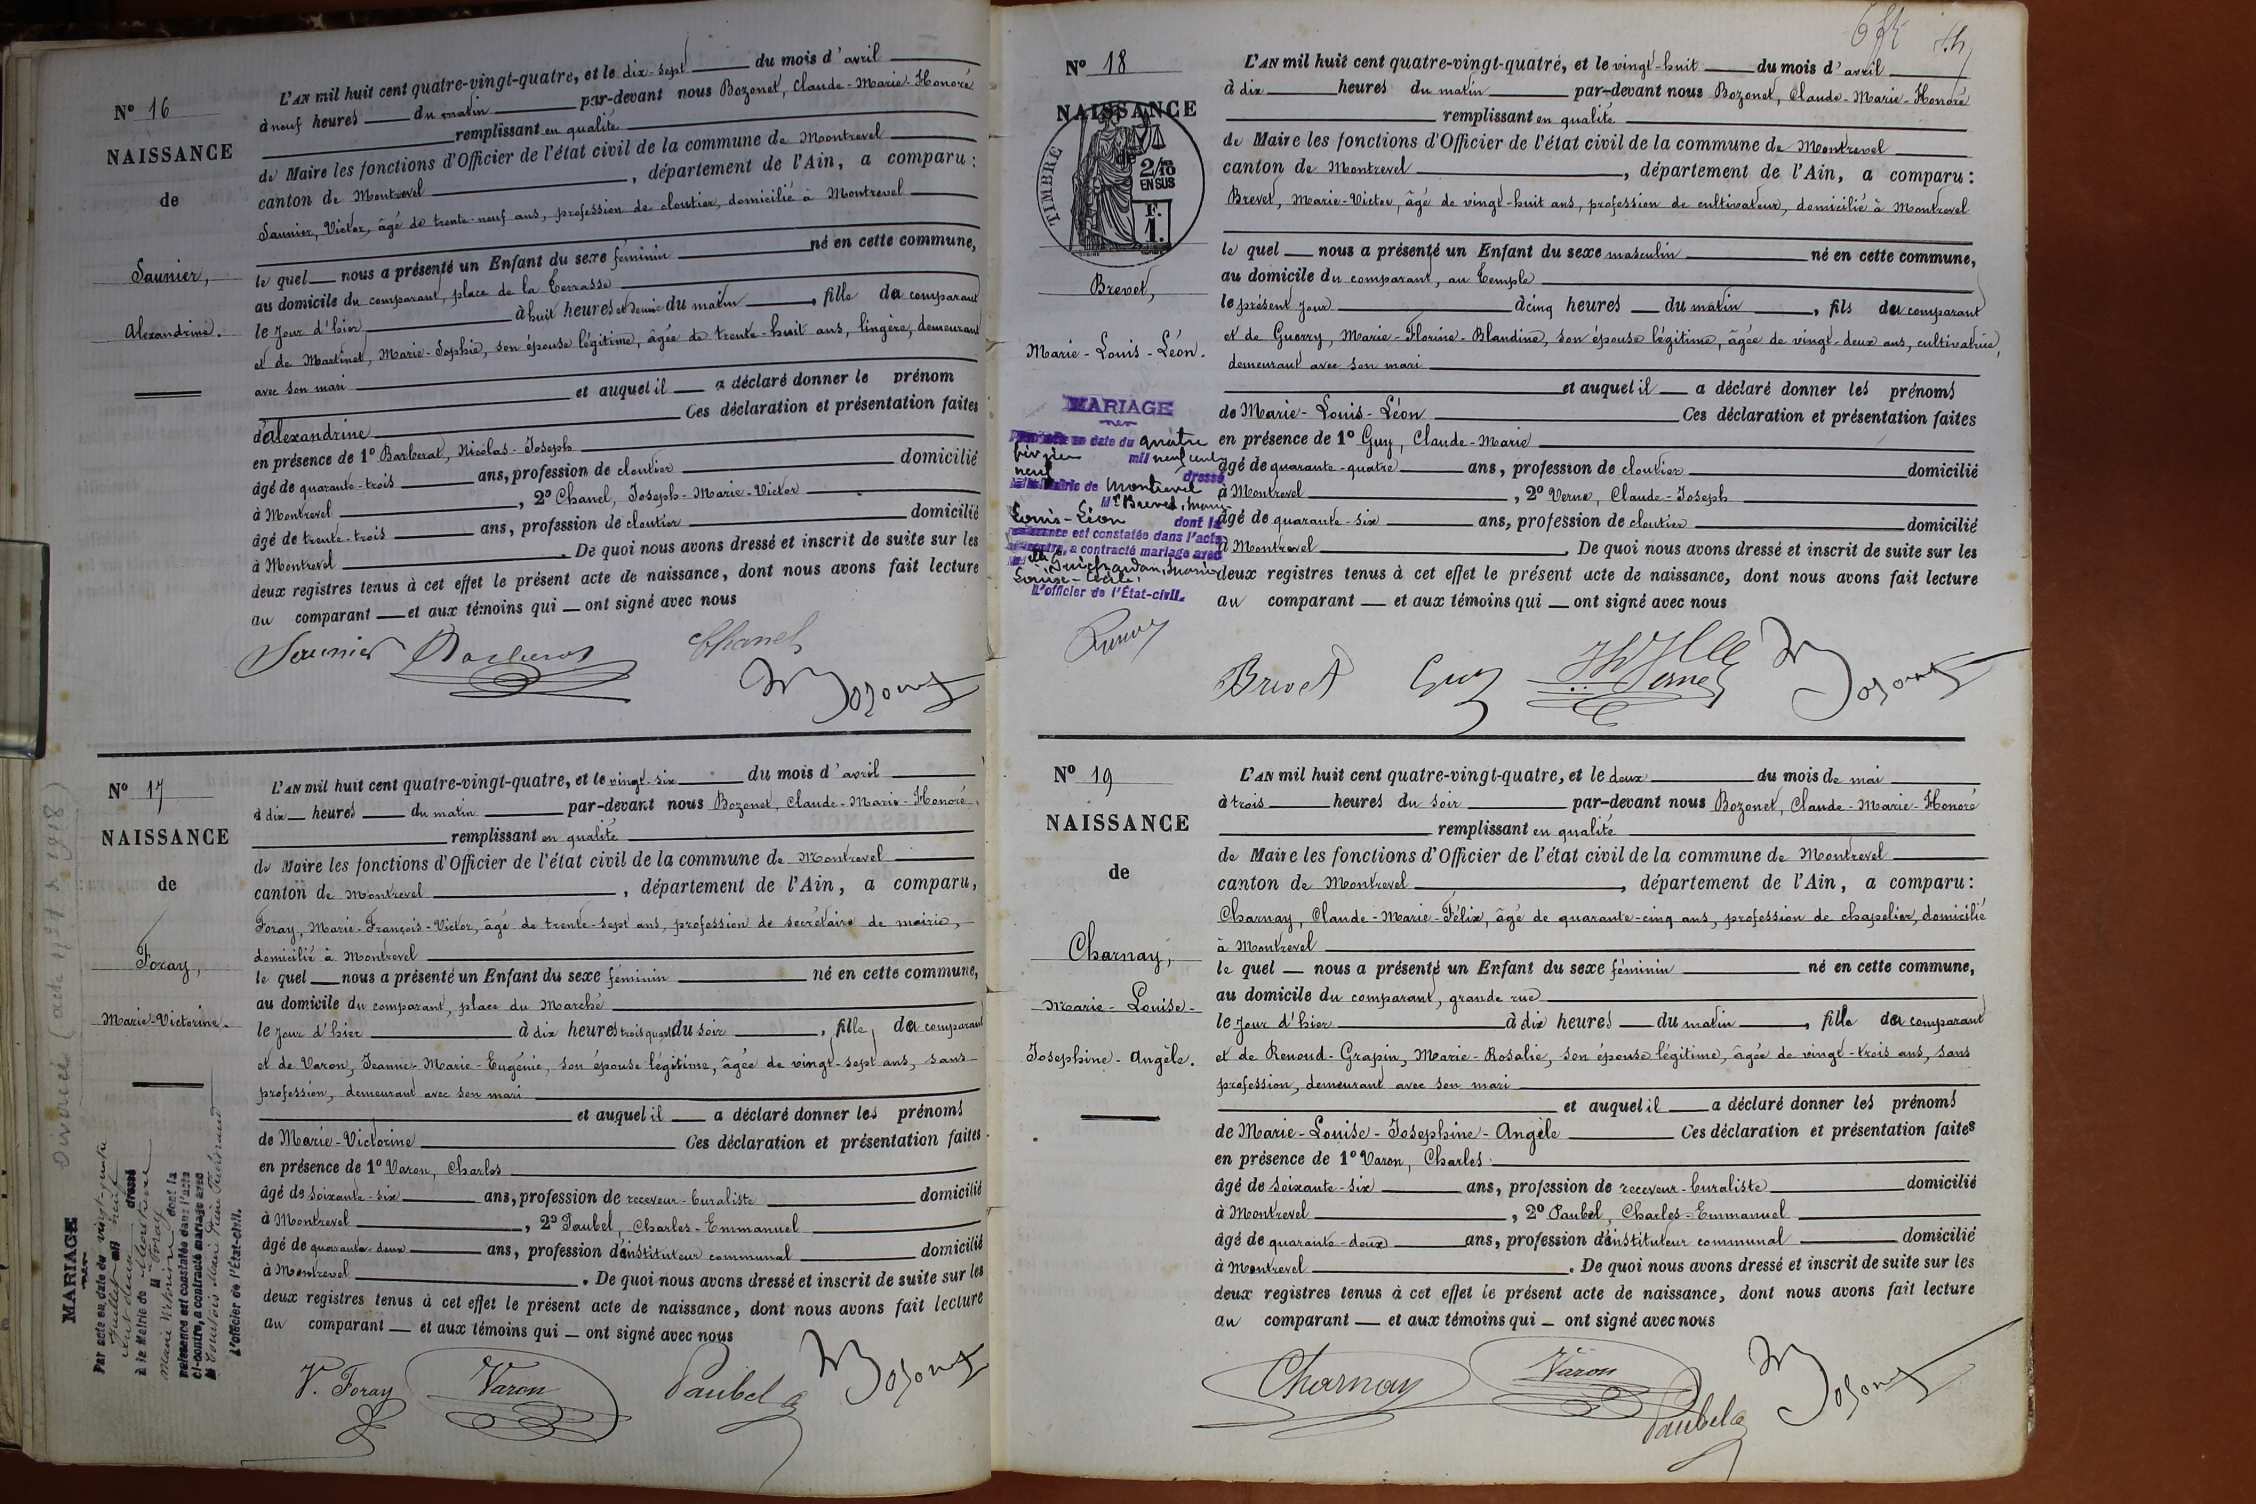 N° 16
NAISSANCE
de
Saunier,
Alexandrine.
L'AN mil huit cent quatre-vingt-quatre, et le dix-sept du mois d'avril
à neuf heures du matin par-devant nous Bozonet, Claude-Marie-Honoré
remplissant en qualité
de Maire les fonctions d'Officier de l'état civil de la commune de Montrevel
canton de Montrevel, département de l'Ain, a comparu:
Saunier, Victor, âgé de trente-neuf ans, profession de cloutier, domicilié à Montrevel
le quel nous a présenté un Enfant du sexe féminin né en cette commune,
au domicile du comparant, place de la Terrasse
le jour d'hier à huit heures et demie du matin, fille du comparant
et de Martinet, Marie-Sophie, son épouse légitime, âgée de trente-huit ans, lingère, demeurant
avec son mari
et auquel il a déclaré donner le prénom
d'Alexandrine Ces déclaration et présentation faites
en présence de 1° Barberat, Nicolas-Joseph
âgé de quarante-trois ans, profession de cloutier domicilié
à Montrevel, 2° Chanel, Joseph-Marie-Victor
âgé de trente-trois ans, profession de cloutier domicilié
à Montrevel. De quoi nous avons dressé et inscrit de suite sur les
deux registres tenus à cet effet le présent acte de naissance, dont nous avons fait lecture
au comparant et aux témoins qui ont signé avec nous
Saunier Barberat Chanel Bozonet
N° 17
NAISSANCE
de
Foray,
Marie-Victorine.
Divorcée
MARIAGE
Par acte en date du vingt-quatre
juillet mil neuf
cent deux dressé
à la Mairie de
M Foray
Marie Victorine dont la
naissance est constatée dans l'acte
ci-contre, a contracté mariage avec
L'officier de l'État-civil.
L'AN mil huit cent quatre-vingt-quatre, et le vingt-six du mois d'avril
à dix heures du matin par-devant nous Bozonet, Claude-Marie-Honoré,
remplissant en qualité
de Maire les fonctions d'Officier de l'état civil de la commune de Montrevel
canton de Montrevel, département de l'Ain, a comparu,
Foray, Marie-François-Victor, âgé de trente-sept ans, profession de secrétaire de mairie,
domicilié à Montrevel
le quel nous a présenté un Enfant du sexe féminin né en cette commune,
au domicile du comparant, place du Marché
le jour d'hier à dix heures trois quart du soir, fille, du comparant
et de Varon, Jeanne-Marie-Eugénie, son épouse légitime, âgée de vingt-sept ans, sans
profession, demeurant avec son mari
et auquel il a déclaré donner les prénoms
de Marie-Victorine Ces déclaration et présentation faites
en présence de 1° Varon, Charles
âgé de soixante-six ans, profession de receveur-buraliste domicilié
à Montrevel, 2° Paubel, Charles-Emmanuel
âgé de quarante-deux ans, profession d'instituteur communal domicilié
à Montrevel. De quoi nous avons dressé et inscrit de suite sur les
deux registres tenus à cet effet le présent acte de naissance, dont nous avons fait lecture
au comparant et aux témoins qui ont signé avec nous
V. Foray Varon Paubel Bozonet
N° 18
NAISSANCE
de
TIMBRE
2/10
EN SUS
F.
1.
Brevet,
Marie-Louis-Léon.
MARIAGE
en date du quatre
février mil neuf cent
neuf dressé
Mairie de Montrevel
Mr Brevet, Marie
Louis-Léon dont la
naissance est constatée dans l'acte
ci-contre, a contracté mariage avec
Louise-Cécile.
L'officier de l'État-civil.
L'AN mil huit cent quatre-vingt-quatre, et le vingt-huit du mois d'avril
à dix heures du matin par-devant nous Bozonet, Claude-Marie-Honoré
remplissant en qualité
de Maire les fonctions d'Officier de l'état civil de la commune de Montrevel
canton de Montrevel, département de l'Ain, a comparu:
Brevet, Marie-Victor, âgé de vingt-huit ans, profession de cultivateur, domicilié à Montrevel
le quel nous a présenté un Enfant du sexe masculin né en cette commune,
au domicile du comparant, au Temple
le présent jour à cinq heures du matin, fils du comparant
et de Guerry, Marie-Florine-Blandine, son épouse légitime, âgée de vingt-deux ans, cultivatrice,
demeurant avec son mari
et auquel il a déclaré donner les prénoms
de Marie-Louis-Léon Ces déclaration et présentation faites
en présence de 1° Guy, Claude-Marie
âgé de quarante-quatre ans, profession de cloutier domicilié
à Montrevel, 2° Verne, Claude-Joseph
âgé de quarante-six ans, profession de cloutier domicilié
à Montrevel. De quoi nous avons dressé et inscrit de suite sur les
deux registres tenus à cet effet le présent acte de naissance, dont nous avons fait lecture
au comparant et aux témoins qui ont signé avec nous
Brevet Guy Verne Bozonet
N° 19
NAISSANCE
de
Charnay,
Marie-Louise-
Josephine-Angèle.
L'AN mil huit cent quatre-vingt-quatre, et le deux du mois de mai
à trois heures du soir par-devant nous Bozonet, Claude-Marie-Honoré
remplissant en qualité
de Maire les fonctions d'Officier de l'état civil de la commune de Montrevel
canton de Montrevel, département de l'Ain, a comparu:
Charnay, Claude-Marie-Félix, âgé de quarante-cinq ans, profession de chapelier, domicilié
à Montrevel
le quel nous a présenté un Enfant du sexe féminin né en cette commune,
au domicile du comparant, grande rue
le jour d'hier à dix heures du matin, fille du comparant
et de Renoud-Grapin, Marie-Rosalie, son épouse légitime, âgée de vingt-trois ans, sans
profession, demeurant avec son mari
et auquel il a déclaré donner les prénoms
de Marie-Louise-Josephine-Angèle Ces déclaration et présentation faites
en présence de 1° Varon, Charles
âgé de soixante-six ans, profession de receveur-buraliste domicilié
à Montrevel, 2° Paubel, Charles-Emmanuel
âgé de quarante-deux ans, profession d'instituteur communal domicilié
à Montrevel. De quoi nous avons dressé et inscrit de suite sur les
deux registres tenus à cet effet le présent acte de naissance, dont nous avons fait lecture
au comparant et aux témoins qui ont signé avec nous
Charnay Varon Paubel Bozonet